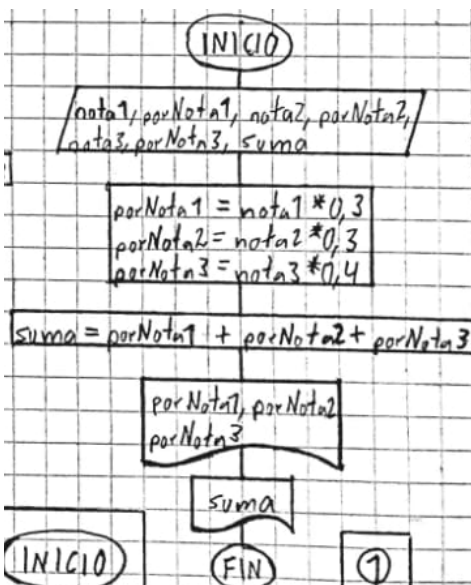 INICIO
nota1, porNota1, nota2, porNota2,
nota3, porNota3, suma
porNota1 = nota1 * 0,3
porNota2 = nota2 * 0,3
porNota3 = nota3 * 0,4
suma = porNota1 + porNota2 + porNota3
porNota1, porNota2
porNota3
suma
INICIO
FIN
1